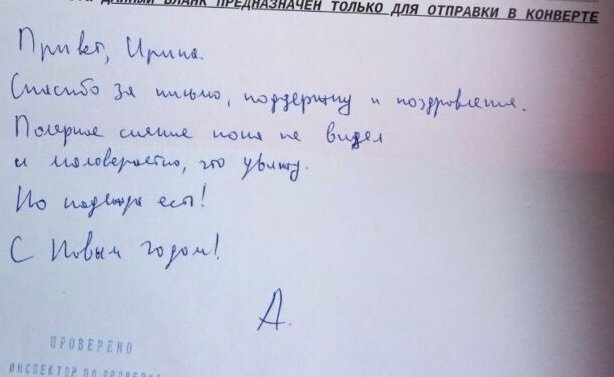 ДАННЫЙ БЛАНК ПРЕДНАЗНАЧЕН ТОЛЬКО ДЛЯ ОТПРАВКИ В КОНВЕРТЕ
Привет, Ирина.
Спасибо за письмо, поддержку и поздравления.
Полярное сияние пока не видел
и маловероятно, что увижу.
Но надежда есть!
С Новым годом!
А.
ПРОВЕРЕНО
ИНСПЕКТОР ПО